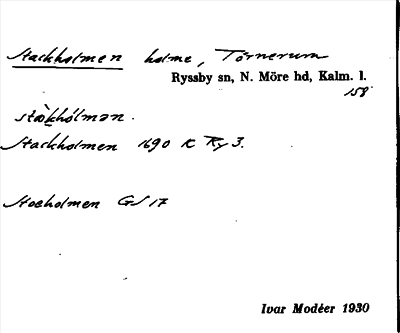 Stackholmen holme, Törnerum
Ryssby sn, N. Möre hd, Kalm. l.
158
stàkhólmən.
Stackholmen 1690 K Ry 3.
Stocholmen GS 17
Ivar Modéer 1930